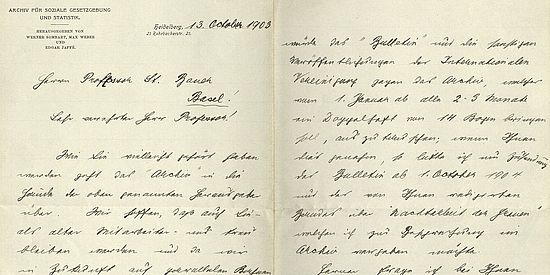 ARCHIV FÜR SOZIALE GESETZGEBUNG
UND STATISTIK.
HERAUSGEGEBEN VON
WERNER SOMBART, MAX WEBER
UND
EDGAR JAFFÉ.
Heidelberg, 13. October 1903
Herrn Professor St. Bauer
Basel!
Sehr verehrter Herr Professor!
Wie Sie vielleicht gehört haben
werden geht das "Archiv" in die
Hände der oben genannten Herausgeber
über. Wir hoffen, dass auch Sie
als alter Mitarbeiter uns treu
bleiben werden und da wir
in Zukunft auf
würde das "Bulletin" und die sonstigen
Veröffentlichungen der Internationalen
Vereinigung gegen das Archiv, welches
vom 1. Januar ab alle 2-3 Monate
ein Doppelheft von 14 Bogen bringen
soll, auszutauschen; wenn Ihnen
das genehm, so bitte ich um Zusendung
des Bulletin ab 1. October 1904
und das von Ihnen
über "Nachtarbeit der Frauen"
welches ich zur Besprechung im
Archiv vergeben möchte.
Ferner frage ich bei Ihnen